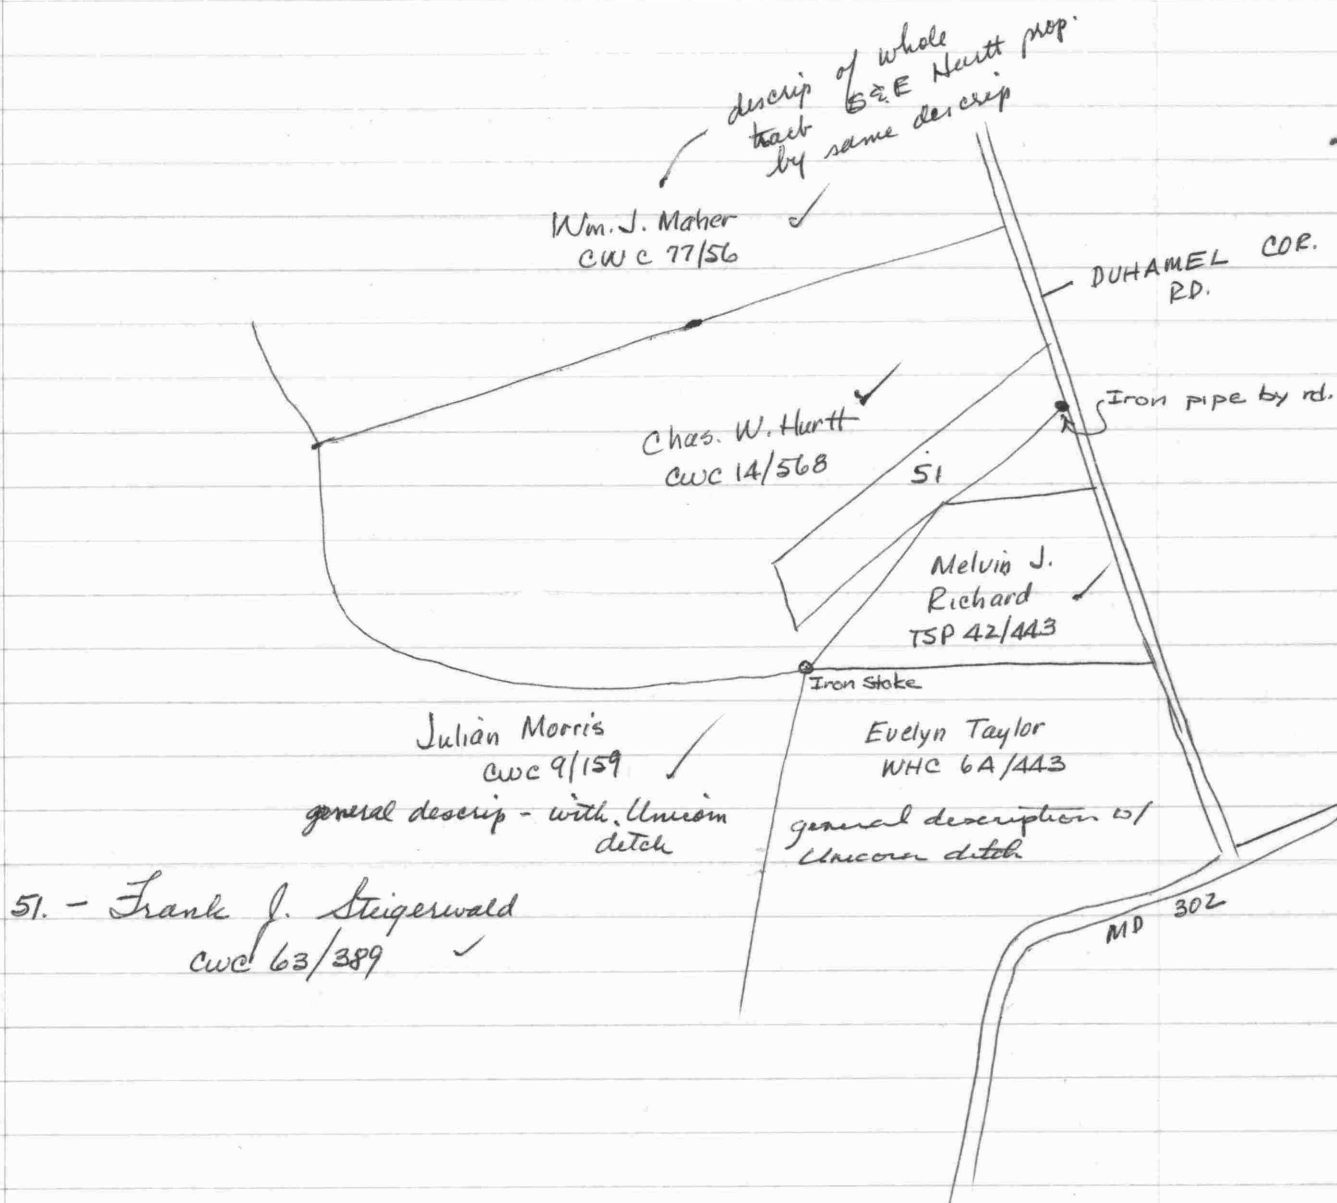 descrip of whole
tract S & E Hurtt prop.
by same descrip
Wm. J. Maher
CWC 77/56
DUHAMEL COR.
RD.
Iron pipe by rd.
Chas. W. Hurtt
CWC 14/568
51
Melvin J.
Richard
TSP 42/443
Iron Stake
Julian Morris
CWC 9/159
general descrip - with Unicorn
ditch
Evelyn Taylor
WHC 6A/443
general description w/
Unicorn ditch
51. - Frank J. Steigerwald
CWC 63/389
MD 302